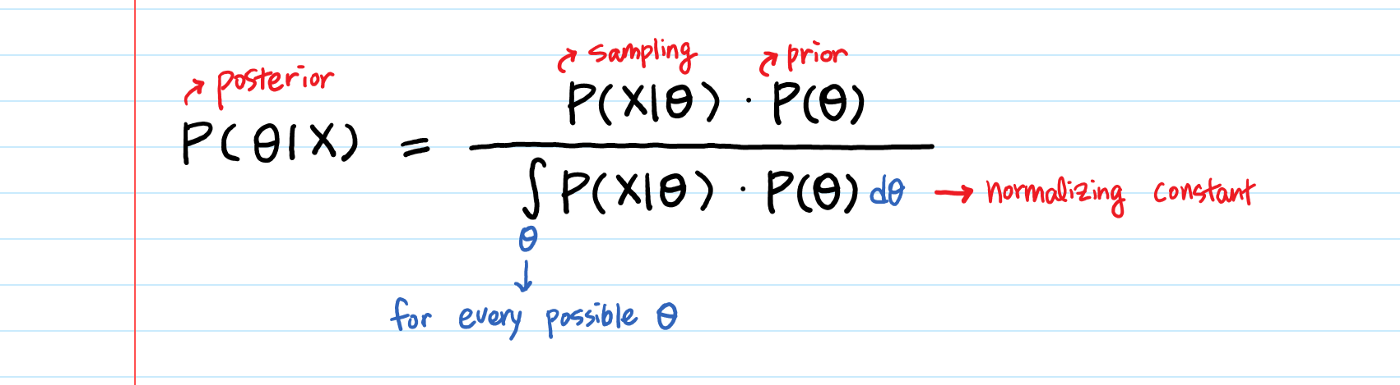 posterior
sampling prior
P(θ|X) = P(X|θ) · P(θ)
∫ P(X|θ) · P(θ) dθ → normalizing constant
θ
↓
for every possible θ